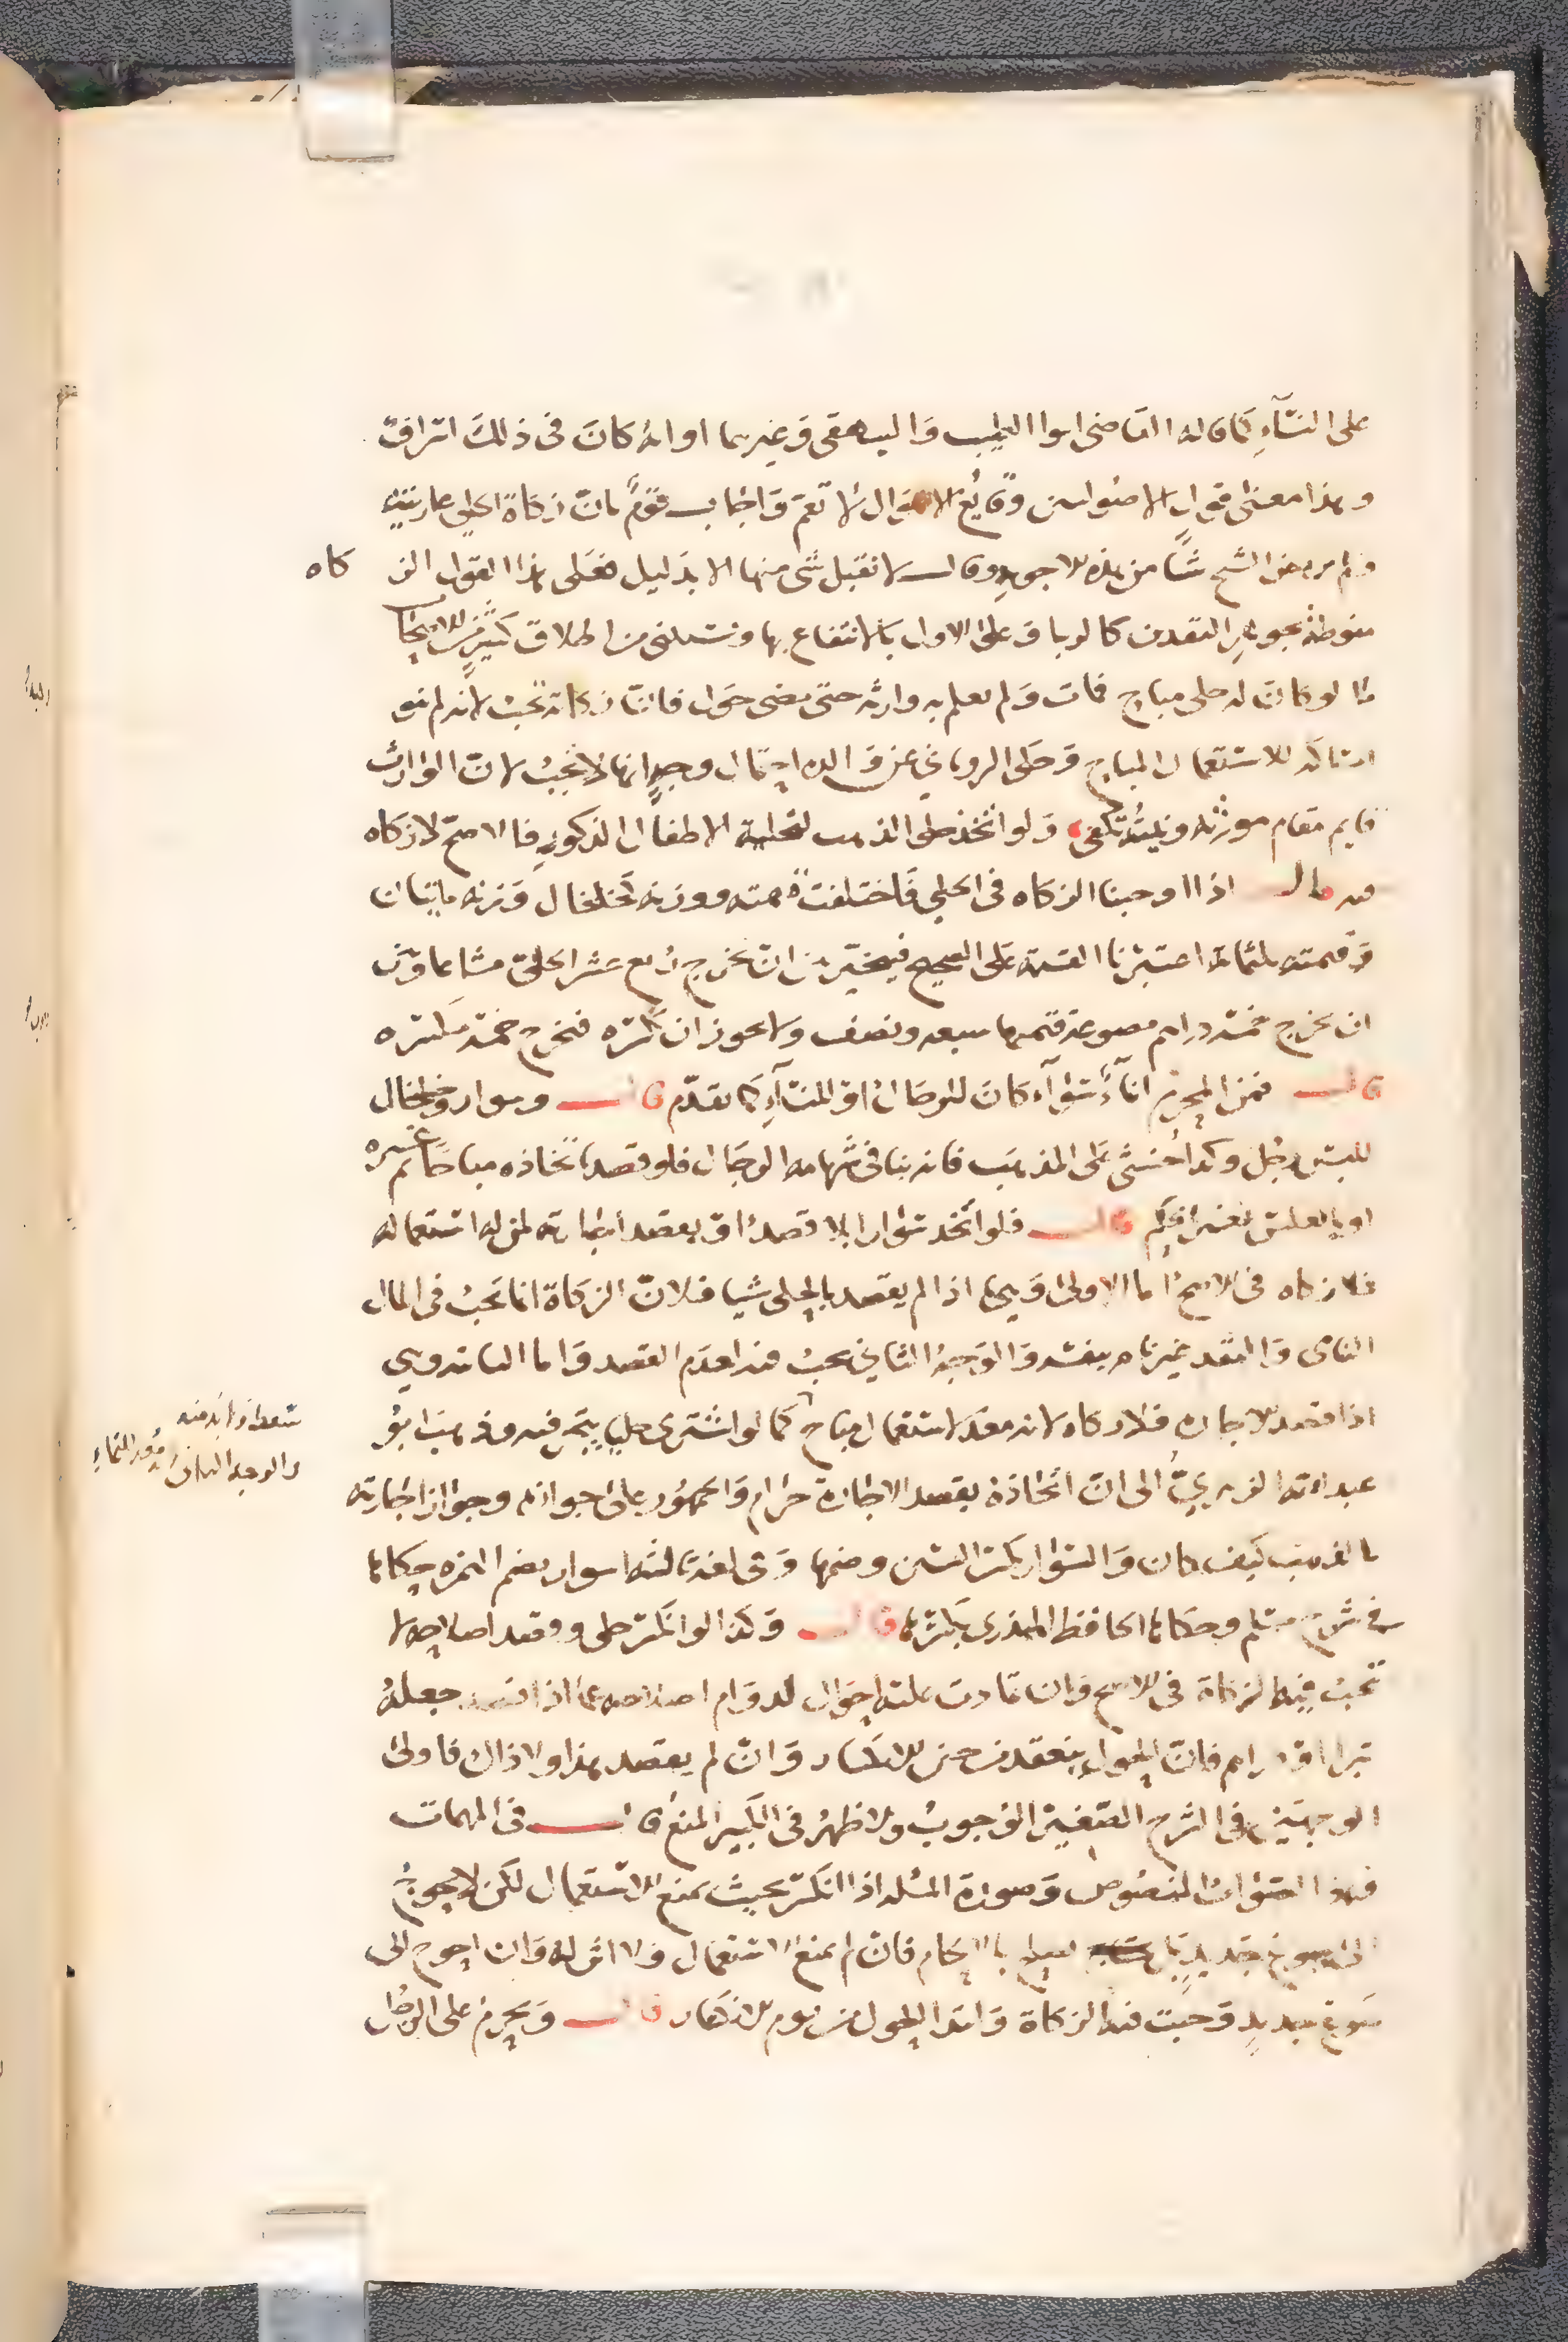 على النسآءِ كما قاله القاضي ابوا الطيب وَالبيهقي وَغيرهما او انه كانَ في ذلكَ اسرافٌ
وهذا معنى قول الاصوليين وقايع الاحوال لا تعمّ وَاجاب قومٌ بانّ زكاةَ الحلي عاريته
ولم يرتض الشيخ شيًا من هذه الاجوبة وقال لا نقبل شي منها الا بدَليل فعَلى هذا القول الزكاه
منوطة بجوهرِ النقدين كالربا وَعلى الاول بالانتفاع بها ويستثنى من اطلاق كثيرٍ من الاصحاب
ما لو كانَ له حلي مباح فمات وَلم يعلم به وارثه حتى مضى حَول فانّ زكاته تجبُ لانه لم ينو
امساكه للاستعمال المباح وَحكى الروياني عن وَالده احتمال وجهٍ انها لا تجبُ لانّ الوارث
قايم مقام مورثه ونيته تكفي وَلو اتخذ حلي الذهب لتحلية الاطفال الذكورِ فالاصحّ لا زكاه
فيه قال اذا اوجبنا الزكاه في الحلي فَاختلفت قيمته ووزنه كخلخال وَزنه مايتان
وَقيمته ثلثمائة اعتبرنا القيمة عَلى الصحيح فيتخيّر بين ان يخرج رُبع عشر الحليّ مشاعا وَبين
ان يخرج خمسة دراهم مصوغة قيمتها سبعه ونصف ولا يجوز ان يكسّره فيخرج خمسة مكسّره
قال فمن المحرم انآءٌ سَوآء كانَ للرجال او للنسآءِ كما تقدّم قال وسوار وخلخال
للبس رجُل وكذا خنثى عَلى المذهَب فانه ينافي شهامه الرجال فلو قصد باتخاذه مباحًا ثم غيّره
او بالعكس تغير الحكم قال فلو اتّخذ سوَارا بلا قصد او بقصد اجارته لمن له استعماله
فلا زكاه في الاصح اما الاولى وَهي ما اذا لم يقصد بالحلي شيا فلانّ الزكاة انما تجبُ في المال
النامي وَالنقد غير نام بنفسه وَالوجهُ الثاني يجبُ فيه لعدَم القصد وَاما الثانية وهي
اذا قصد الاجاره فلا زكاه لانه معد لاستعمال مباح كما لو اشترى حليا يتجر فيه وذهب ابوُ
سقط ولابد منه
والوجه الثاني انه مُعد للنماءِ
عبد الله الزبيريّ الى انّ اتخاذه بقصد الاجارة حرَام وَالجمهُور على جوازه وجوَاز اجَارته
بالذهب كيف كان وَالسوَار بكسر السين وضمها وَفي لغة ثالثه اسوار بضم الهمزه حكاها
في شرح مسلم وحكاها الحافظ المنذري بكسرها قال وَكذا لو انكسر حلي وقصد اصلاحه لا
تجبُ فيه الزكاة في الاصح وَان تمادت عليه احوَال لدوَام اصلاحه اما اذا قصد جعله
تبرا او دراهم فانّ الحول ينعقد من حين الانكسار وَانْ لم يقصد هذا ولا ذاك فاولى
الوجهين في الشرح الصّغير الوجوبُ والاظهرُ في الكبير المنعُ قال في المهمات
وهذا الصَوابُ المنصُوص وَصورَة المسئلة اذا انكسر بحيث يمنع الاستعمال لكن لا يحوجُ
الى صوغ جَديدٍ بل يصلح بالالحام فانْ لم يمنع الاستعمال وَلا اثر له وَان احوج الى
صَوغ جديدٍ وَجبت فيه الزكاة وَابتدا الحول من يوم الانكسار قال وَيحرمُ على الرجُل